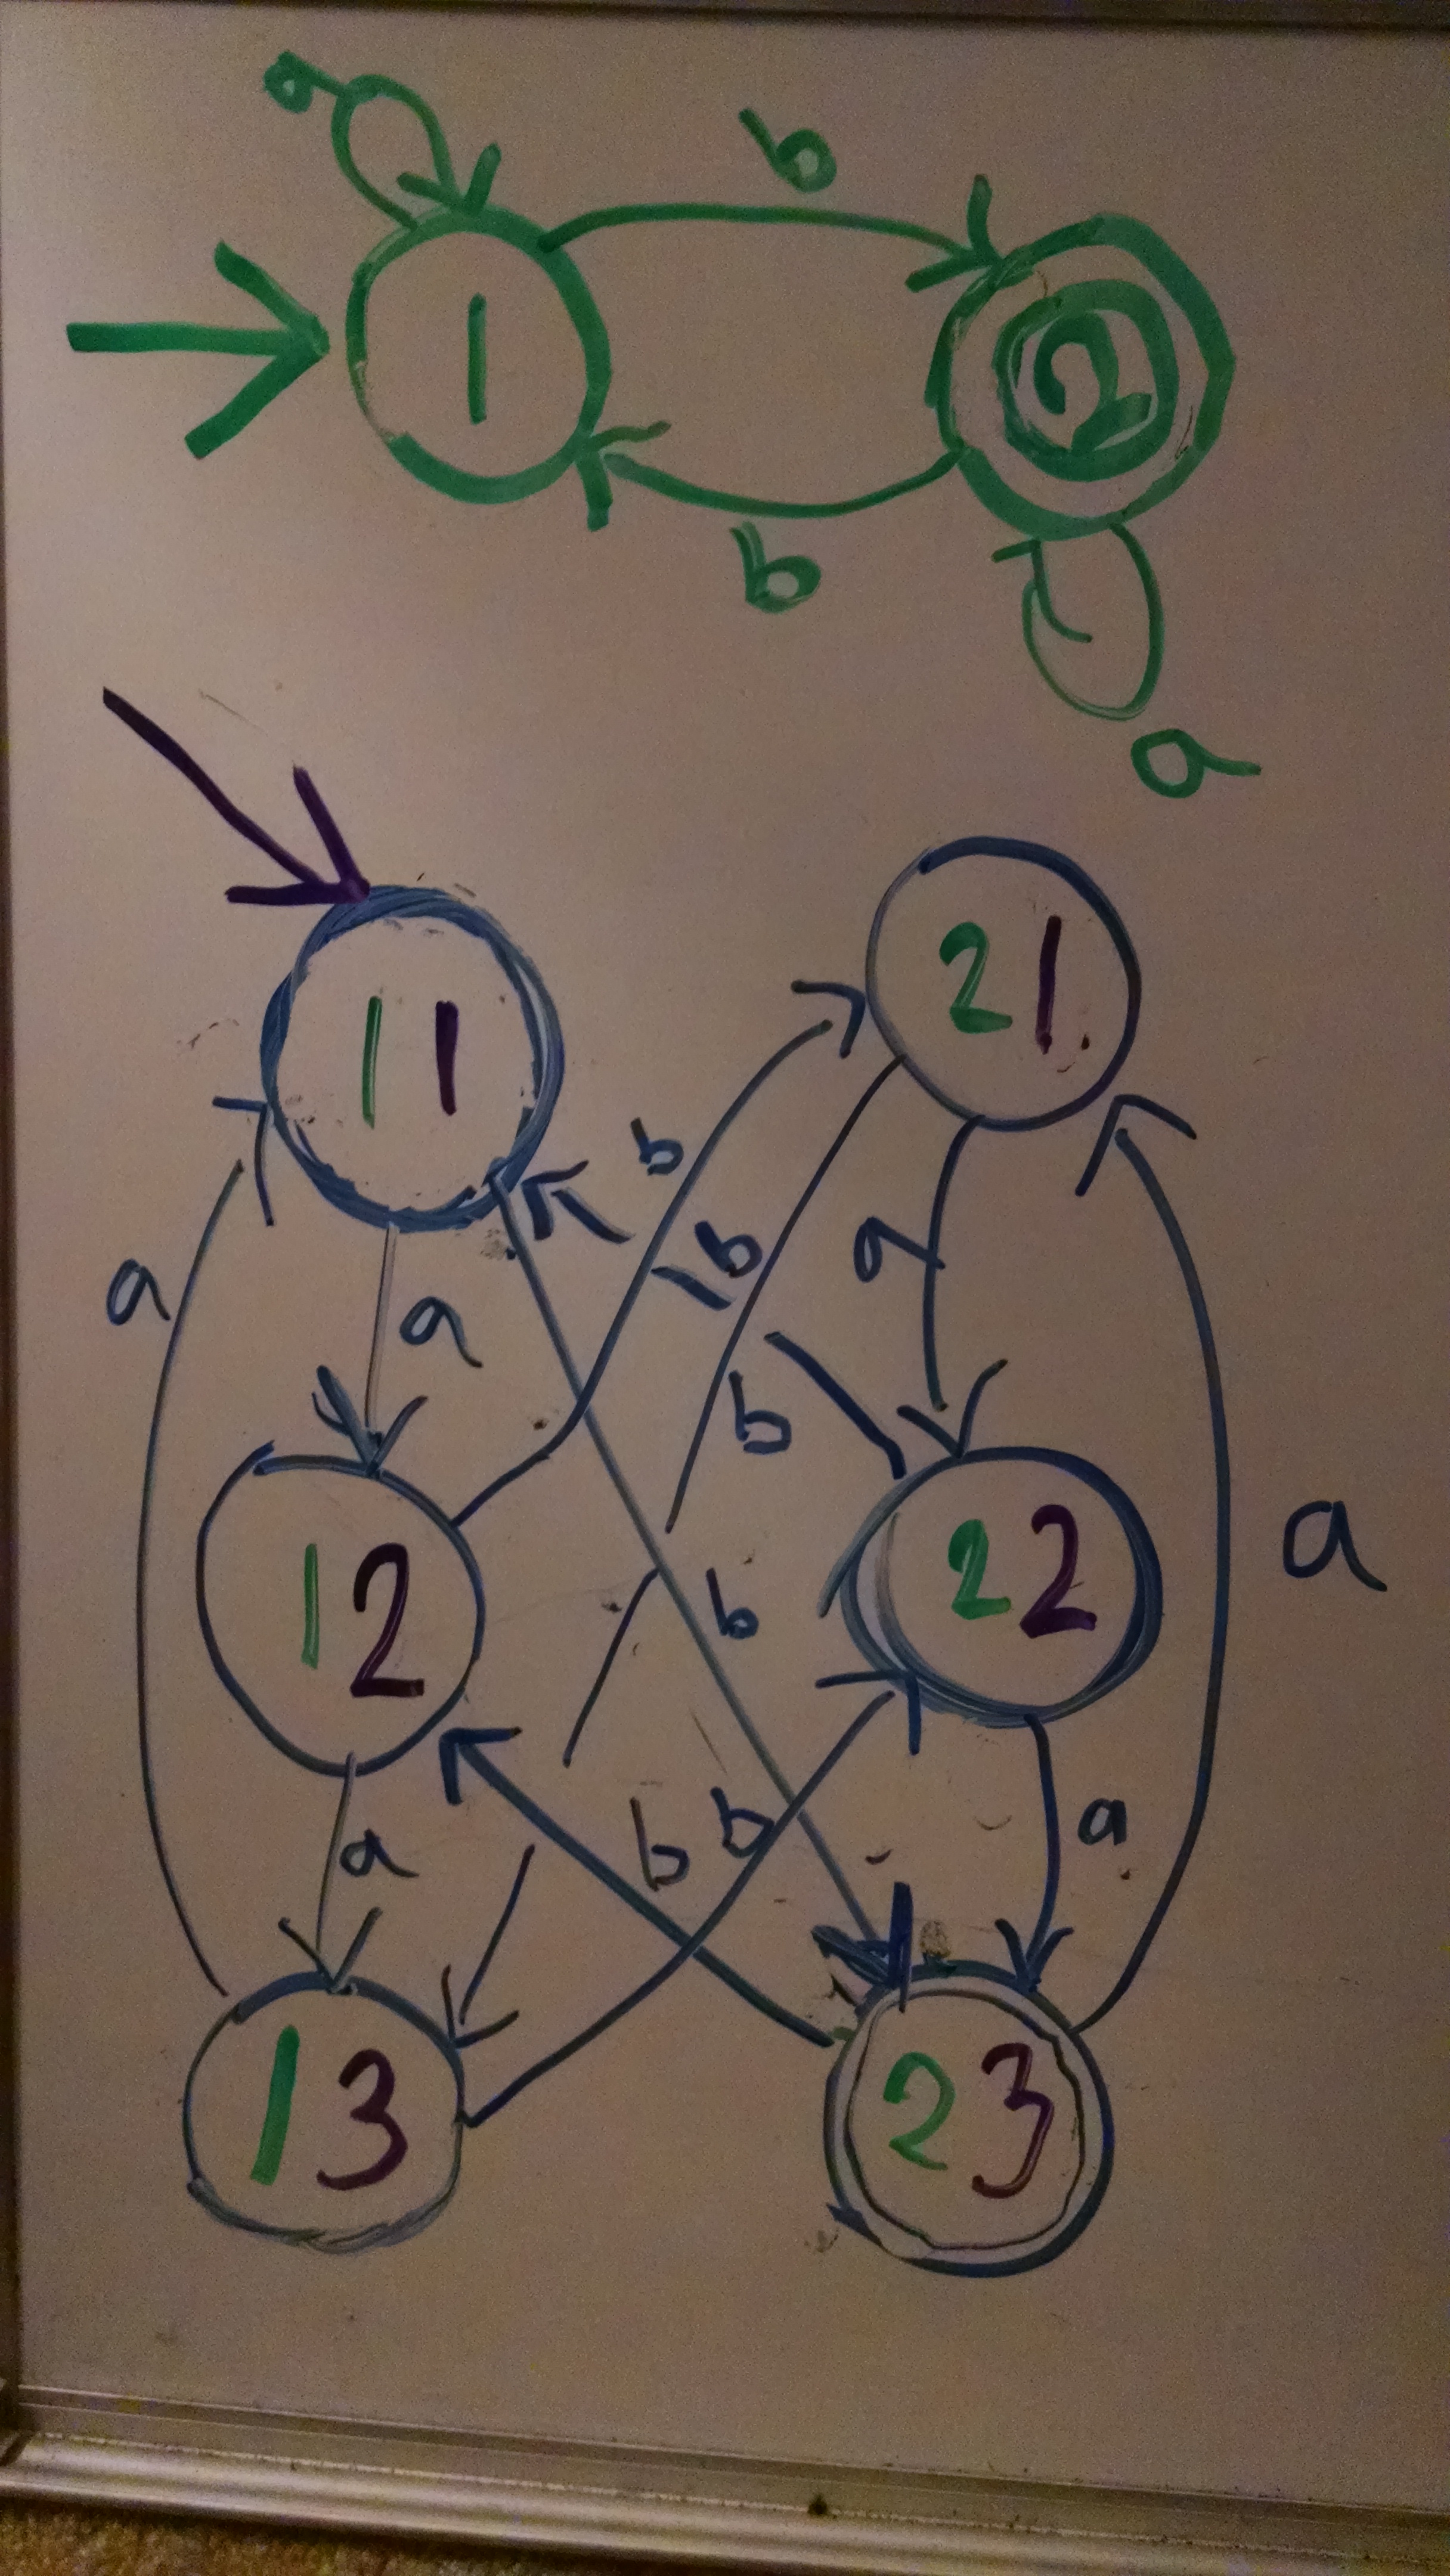 a
b
1
2
b
a
11
21
b
b
a
a
a
b
12
22
a
b
b
b
a
a
13
23